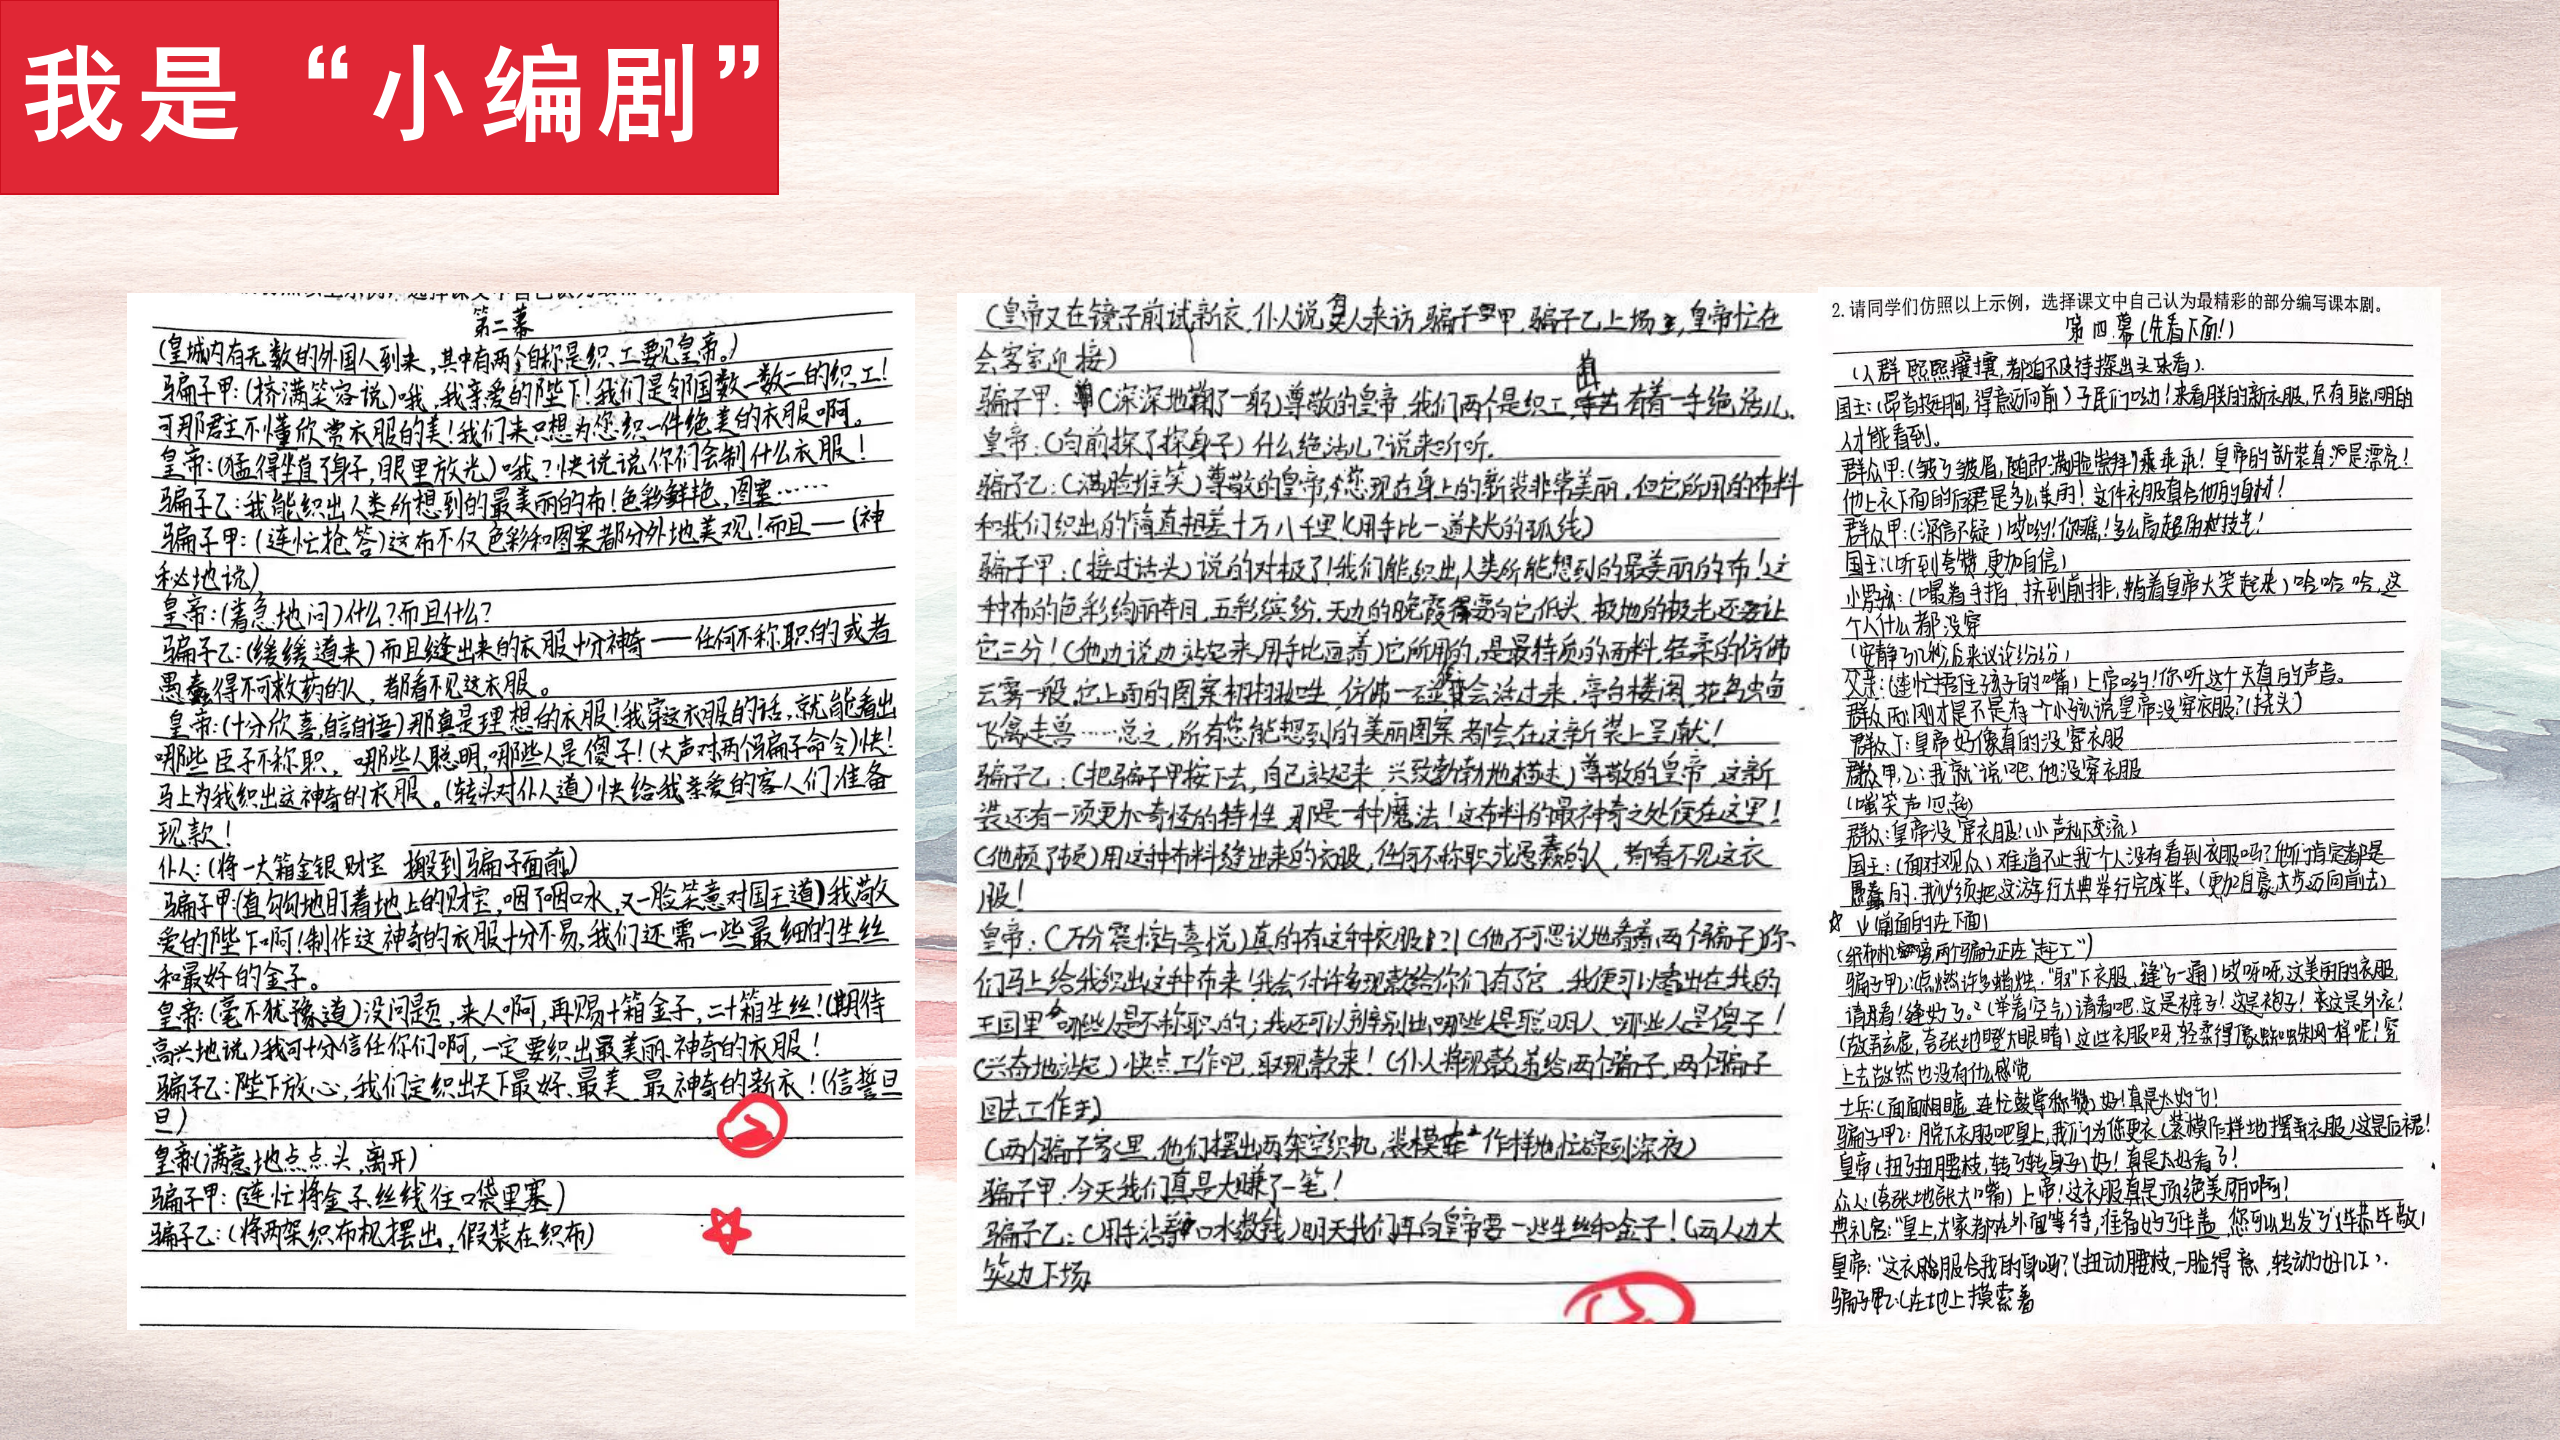 我是“小编剧”
第二幕
(皇城内有无数的外国人到来,其中有两个自称是织工要见皇帝。)
骗子甲:(挤满笑容说)哦,我亲爱的陛下!我们是邻国数一数二的织工!
可那君主不懂欣赏衣服的美!我们来只想为您织一件绝美的衣服啊。
皇帝:(猛得坐直了身子,眼里放光)哦?快说说你们会制什么衣服!
骗子乙:我能织出人类所想到的最美丽的布!色彩鲜艳,图案……
骗子甲:(连忙抢答)这布不仅色彩和图案都分外地美观!而且——(神
秘地说)
皇帝:(着急地问)什么?而且什么?
骗子乙:(缓缓道来)而且缝出来的衣服十分神奇——任何不称职的或者
愚蠢得不可救药的人,都看不见这衣服。
皇帝:(十分欣喜,自言自语)那真是理想的衣服!我穿这衣服的话,就能看出
哪些臣子不称职,哪些人聪明,哪些人是傻子!(大声对两个骗子命令)快!
马上为我织出这神奇的衣服。(转头对仆人道)快给我亲爱的客人们准备
现款!
仆人:(将一大箱金银财宝 搬到骗子面前)
骗子甲:(直勾勾地盯着地上的财宝,咽了咽口水,又一脸笑意对国王道)我敬
爱的陛下啊!制作这神奇的衣服十分不易,我们还需一些最细的生丝
和最好的金子。
皇帝:(毫不犹豫道)没问题,来人啊,再赐十箱金子,二十箱生丝!(期待
高兴地说)我可十分信任你们啊,一定要织出最美丽、神奇的衣服!
骗子乙:陛下放心,我们定织出天下最好、最美、最神奇的新衣!(信誓旦
旦)
皇帝(满意地点点头,离开)
骗子甲:(连忙将金子、丝线往口袋里塞)
骗子乙:(将两架织布机摆出,假装在织布)
(皇帝又在镜子前试新衣,仆人说有人来访,骗子甲,骗子乙上场,皇帝忙在
会客室迎接)
骗子甲:(深深地鞠了一躬)尊敬的皇帝,我们两个是织工,有着一手绝活儿。
皇帝:(向前探了探身子)什么绝活儿?说来听听。
骗子乙:(满脸堆笑)尊敬的皇帝,您现在身上的新装非常美丽,但它所用的布料
和我们织出的简直相差十万八千里!(用手比一道大大的弧线)
骗子甲:(接过话头)说的对极了!我们能织出人类所能想到的最美丽的布!这
种布的色彩绚丽夺目,五彩缤纷,天边的晚霞得要向它低头,极地的极光还要让
它三分!(他边说边站起来,用手比画着)它所用的,是最特质的面料,轻柔的仿佛
云雾一般,它上面的图案栩栩如生,仿佛一碰就会活过来,亭台楼阁,花鸟虫鱼
飞禽走兽……总之,所有您能想到的美丽图案都会在这新装上呈献!
骗子乙:(把骗子甲按下去,自己站起来,兴致勃勃地描述)尊敬的皇帝,这新
装还有一项更加奇怪的特性,那是一种魔法!这布料的最神奇之处便在这里!
(他顿了顿)用这种布料缝出来的衣服,任何不称职或愚蠢的人,都看不见这衣
服!
皇帝:(万分震惊与喜悦)真的有这种衣服!?!(他不可思议地看着两个骗子)你
们马上给我织出这种布来!我会付许多现款给你们,有了它,我便可以看出在我的
王国里哪些人是不称职的;我还可以辨别出哪些人是聪明人,哪些人是傻子!
(兴奋地站起)快点工作吧,取现款来!(仆人将现款递给两个骗子,两个骗子
回去工作)
(两个骗子家里,他们摆出两架空织机,装模作样地忙碌到深夜)
骗子甲:今天我们真是大赚了一笔!
骗子乙:(用手沾着口水数钱)明天我们再向皇帝要一些生丝和金子!(两人边大
笑边下场
2.请同学们仿照以上示例,选择课文中自己认为最精彩的部分编写课本剧。
第四幕(先看下面!)
(人群熙熙攘攘,都迫不及待探出头来看)
国王:(昂首挺胸,得意迈向前)子民们呦!来看朕的新衣服,只有聪明的
人才能看到。
群众甲:(皱了皱眉,随即满脸崇拜)乖乖乖!皇帝的新装真是漂亮!
他上衣下面的后裙是多么美丽!这件衣服真合他的身材!
群众甲:(深信不疑)哎哟!你瞧!多么高超的技艺!
国王:(听到夸赞,更加自信)
小男孩:(嘬着手指,挤到前排,指着皇帝大笑起来)哈哈哈,这
个人什么都没穿
(安静了几秒后来议论纷纷)
父亲:(连忙捂住孩子的嘴)上帝哟!你听这个天真的声音。
群众丙:刚才是不是有一个小孩说皇帝没穿衣服?(挠头)
群众丁:皇帝好像真的没穿衣服
群众甲,乙:我就说吧,他没穿衣服
(嗤笑声四起)
群众:皇帝没穿衣服!(小声私下交流)
国王:(面对观众)难道不止我一个人没有看到衣服吗?他们肯定都是
愚蠢的,我必须把这游行大典举行完毕。(更加自豪,大步迈向前去)
☆ ↓(前面的在下面)
骗子甲乙:(点燃许多蜡烛,“取”下衣服,缝了一通)哎呀呀,这美丽的衣服
请看!缝好了。”(举着空气)请看吧,这是裤子!这是袍子!这是外衣!
(故弄玄虚,夸张地瞪大眼睛)这些衣服呀,轻柔得像蜘蛛网一样呢!穿
上去故然也没有什么感觉
士兵:(面面相觑,连忙鼓掌称赞)好!真是太好了!
骗子甲乙:脱下衣服吧皇上,我们为您更衣(装模作样地摆弄衣服)这是后裙!
皇帝(扭了扭腰枝,转了转身子)好!真是太好看了!
众人(夸张地张大嘴)上帝!这衣服真是顶绝美丽啊!
典礼官:“皇上,大家都在外面等待,准备好了华盖,您可以出发了”(毕恭毕敬)
皇帝:“这衣服合我的身吗?”(扭动腰枝,一脸得意,转动了好几下).
骗子甲乙:(在地上摸索着